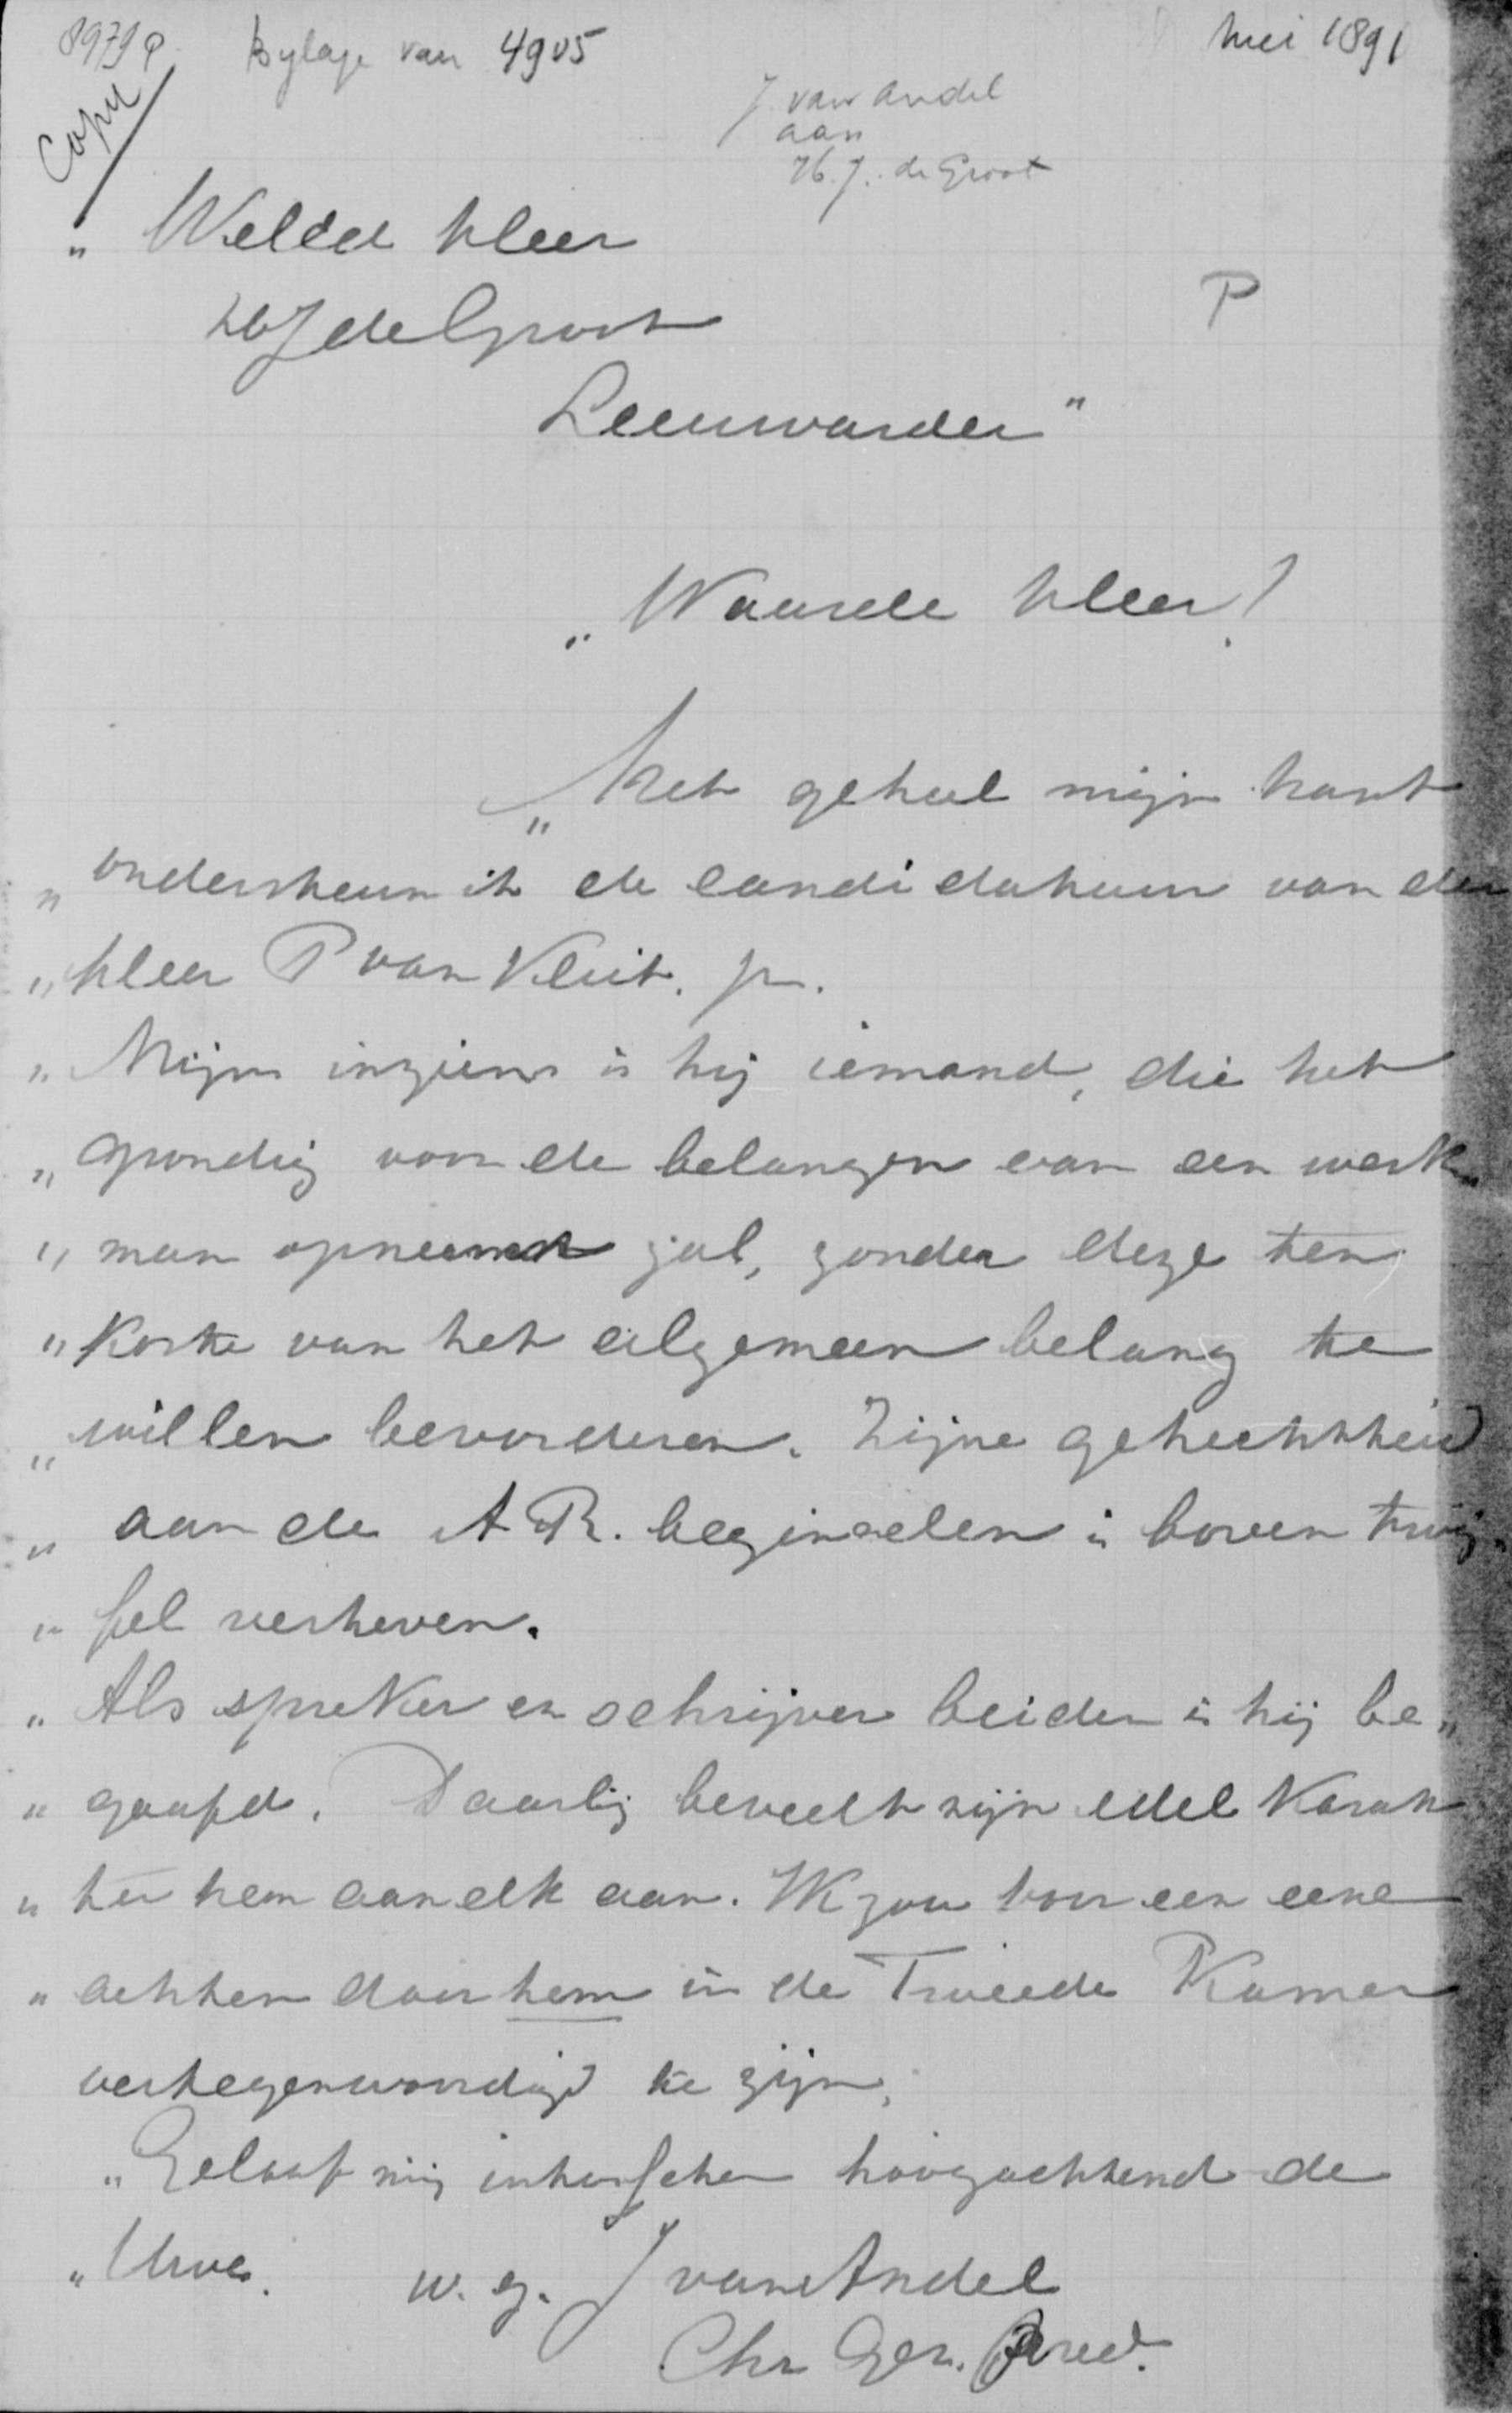 8979 P. Bylage van 4905 mei 1891
Copie
J. van Andel
aan
H. J. de Groot
„ WelEd Heer
P
HJ de Groot
Leeuwarden"
„Waarde Heer!
„Met geheel mijn hart
„ondersteun ik de candidatuur van den
„Heer P van Vliet. jr.
„Mijns inziens is hij iemand, die het
„grondig voor de belangen van den werk„
„man opneemen zal, zonder deze ten
„koste van het algemeen belang te
„willen bevorderen. Zijne gehechtheid
„aan de A R. beginselen is boven twij„
„fel verheven.
„Als spreker en schrijver beiden is hij be„
„gaafd. Daarbij beveelt zijn edel karak
„ter hem aan elk aan. Ik zou het een eere
„achten door hem in de Tweede Kamer
vertegenwoordigd te zijn.
„Geloof mij intusschen hoogachtend de
„Uwe. w. g. J van Andel
Chr Ger. Pred.